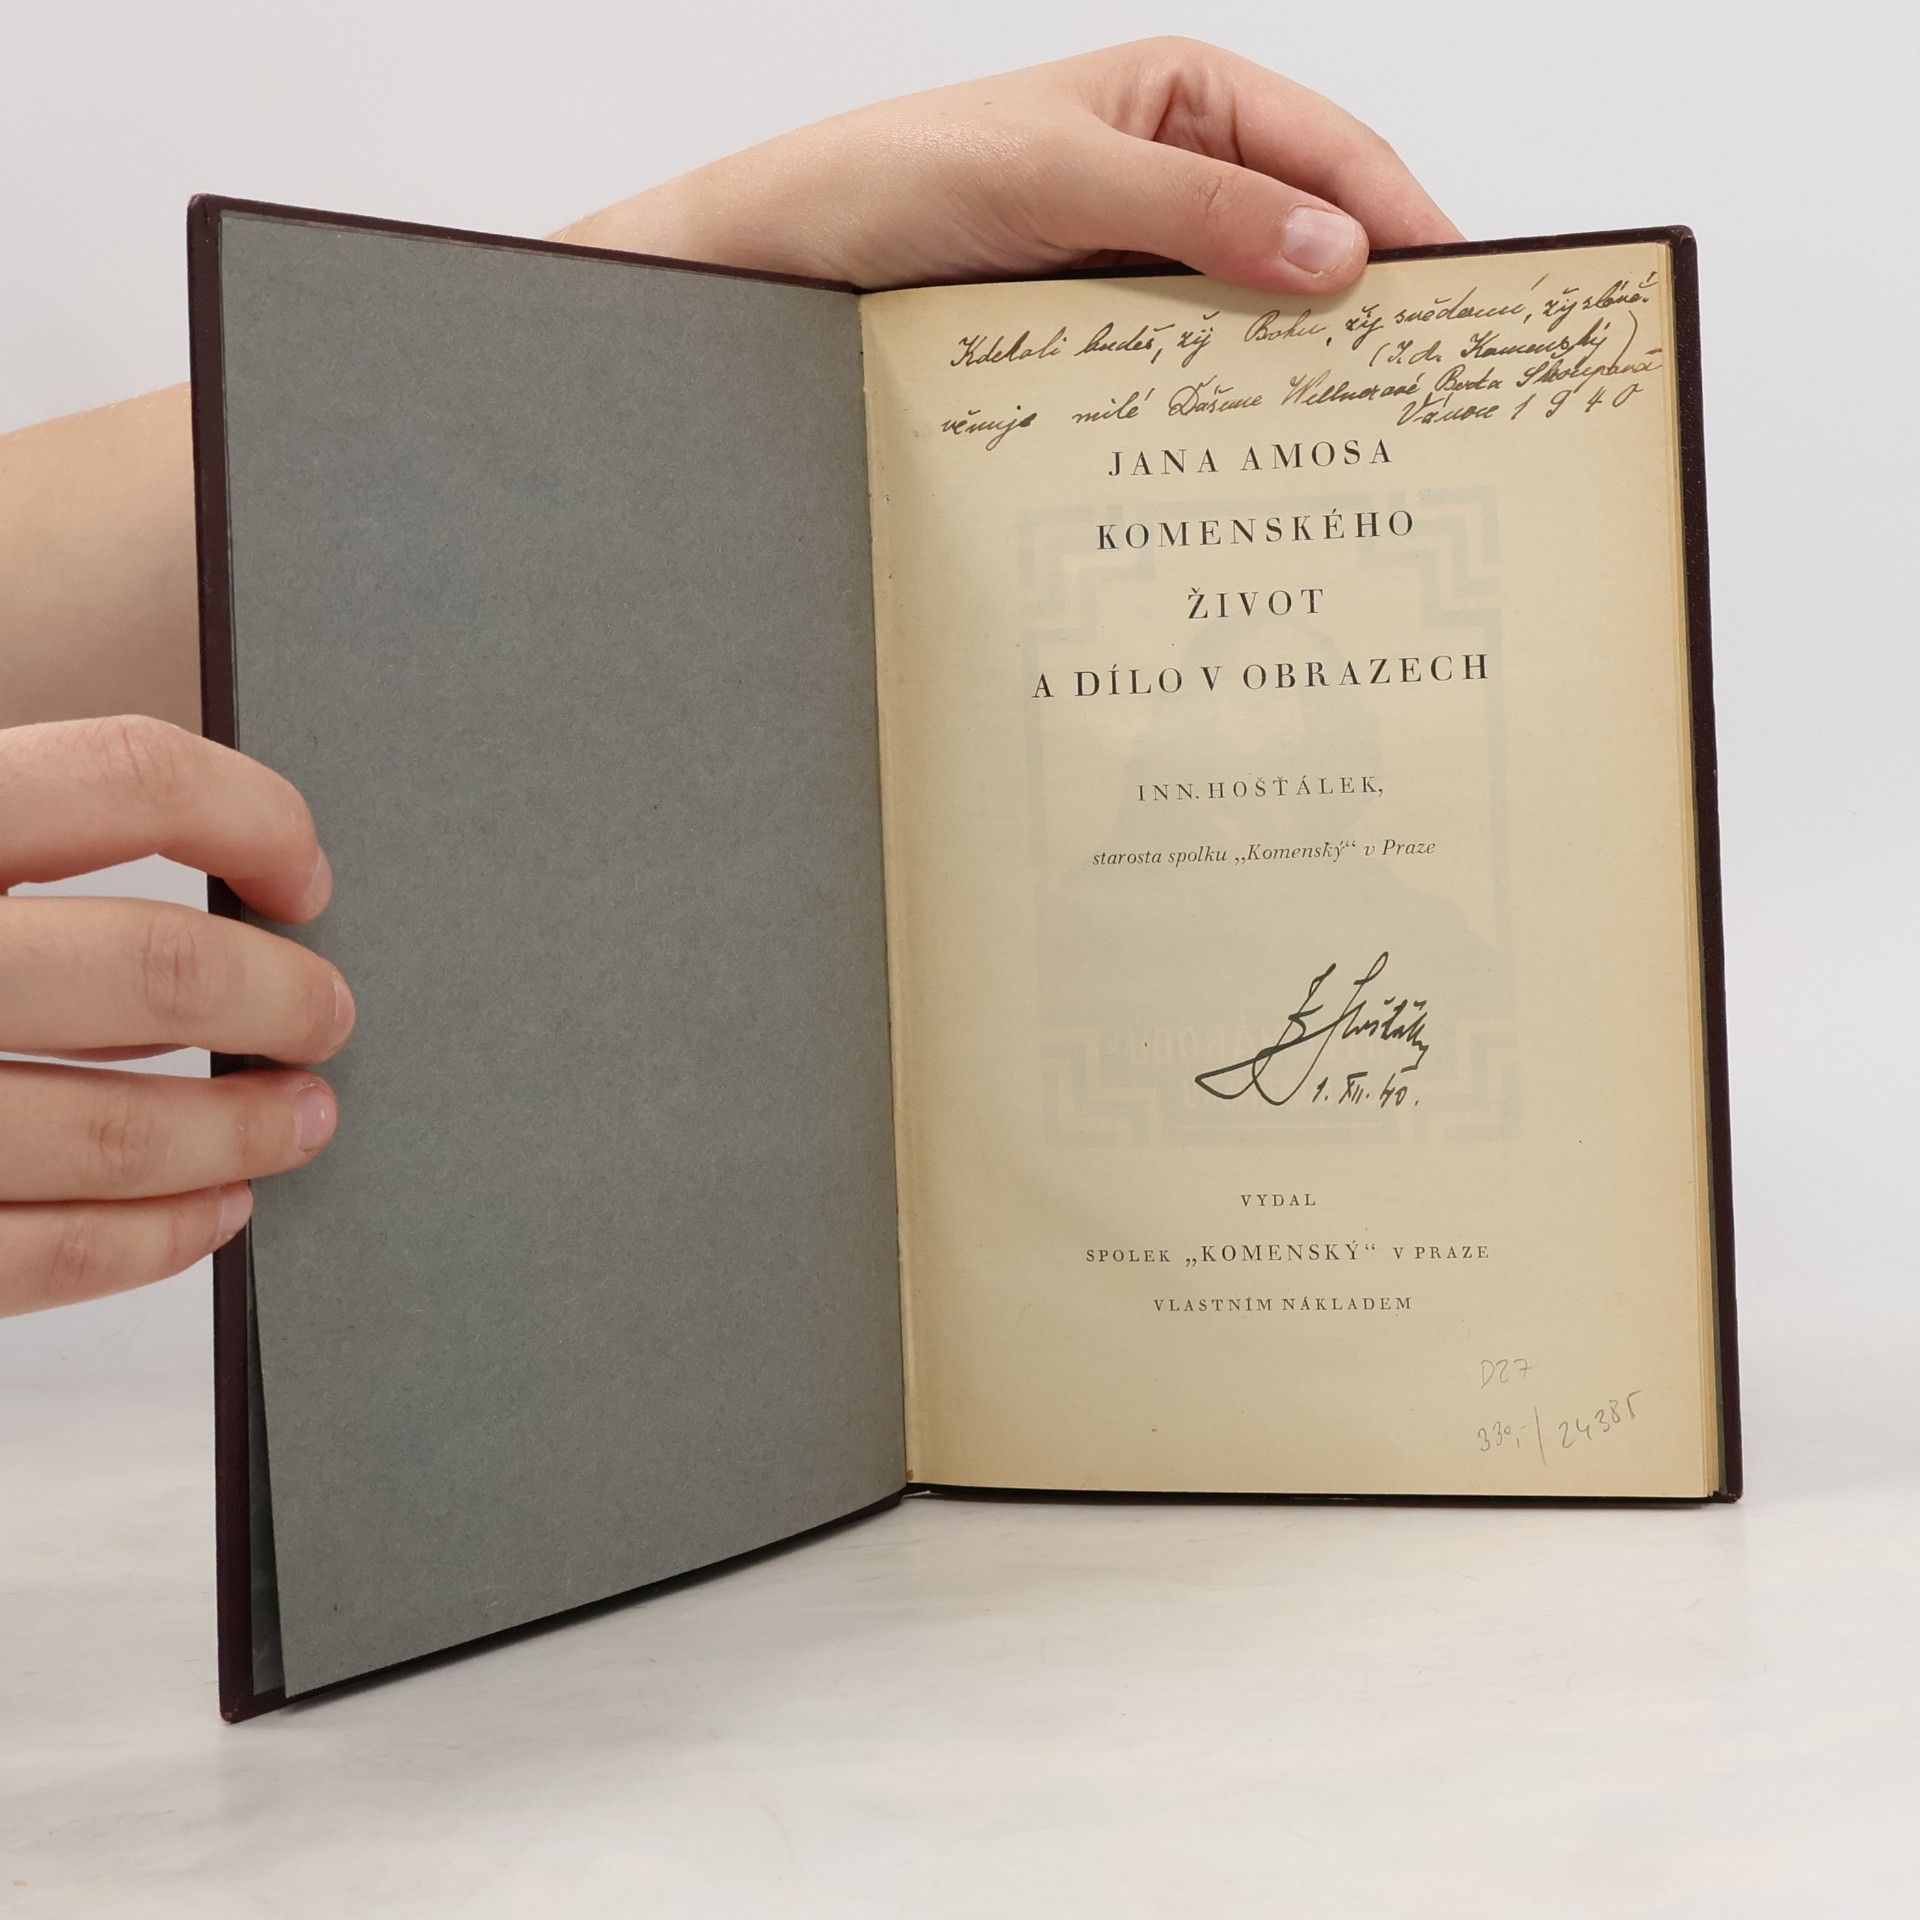 Kdekoli budeš, žij Bohu, žij svědomí, žij slávě.
(J. A. Komenský)
věnuje milé Dášence Wellnerové Berta
Vánoce 1940
JANA AMOSA
KOMENSKÉHO
ŽIVOT
A DÍLO V OBRAZECH
INN. HOŠŤÁLEK,
starosta spolku „Komenský“ v Praze
1. XII. 40.
VYDAL
SPOLEK „KOMENSKÝ“ V PRAZE
VLASTNÍM NÁKLADEM
D27
330,-/24385